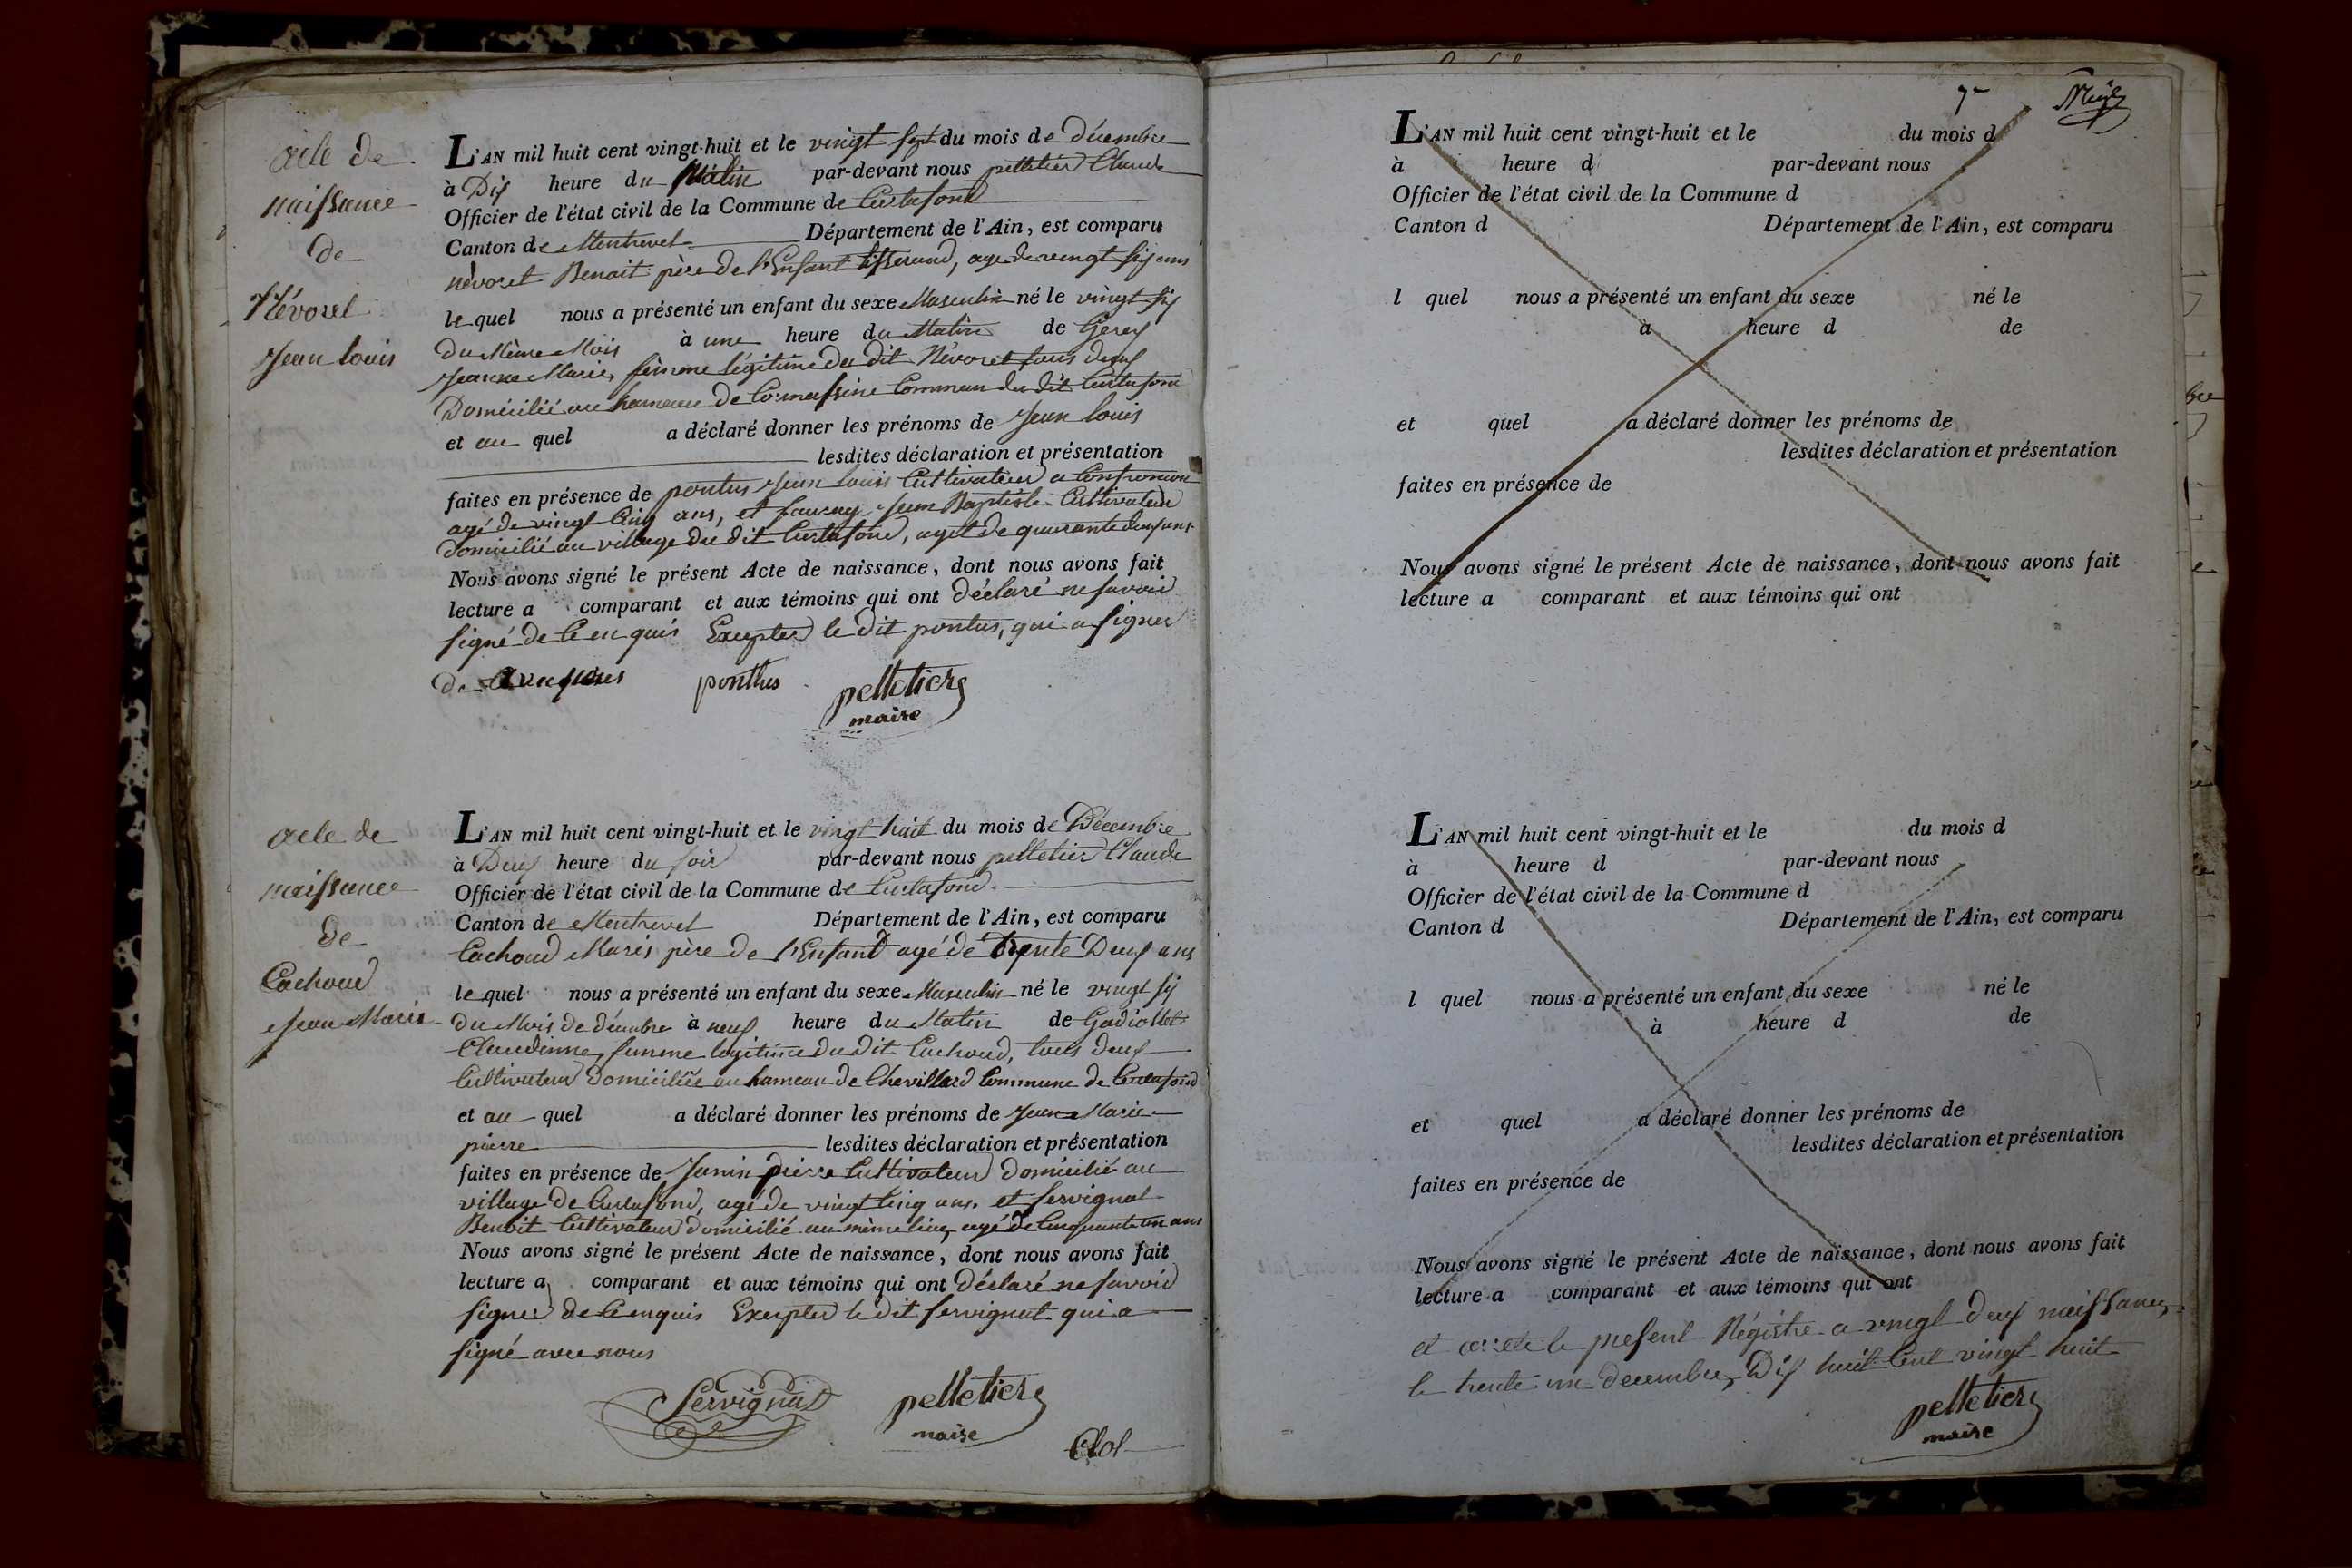 acte de
naissance
de
Névoret
Jean louis
L'AN mil huit cent vingt-huit et le vingt sept du mois de décembre
à Dix heure du Matin par-devant nous pelletier Claude
Officier de l'état civil de la Commune de Curtafond
Canton de Montrevel Département de l'Ain, est comparu
névoret Benoit père de l'Enfant tisserand, age de vingt six ans
le quel nous a présenté un enfant du sexe Masculin né le vingt six
du Même Mois à une heure du Matin de Gerey
Jeanne Marie, femme légitime du dit Névoret tous deux
Domicilié au hameau de Commun du dit Curtafond
et au quel a déclaré donner les prénoms de Jean louis
lesdites déclaration et présentation
faites en présence de pontus Jean louis Cultivateur a Confrancon
agé de vingt Cinq ans, et Jean Baptiste Cultivateur
domicilié au village du dit Curtafond, aget de quarante deux ans
Nous avons signé le présent Acte de naissance, dont nous avons fait
lecture a comparant et aux témoins qui ont déclaré ne savoir
signé de Ce en quis Excepter le dit pontus, qui a signer
de ponthus pelletier
maire
acte de
naissance
de
Cachoud
Jean Marie
L'AN mil huit cent vingt-huit et le vingt huit du mois de Décembre
à Deux heure du soir par-devant nous pelletier Claude
Officier de l'état civil de la Commune de Curtafond
Canton de Montrevel Département de l'Ain, est comparu
Cachoud Marie père de l'Enfant agé de Trente Deux ans
le quel nous a présenté un enfant du sexe Masculin né le vingt six
du Mois de décembre à neuf heure du Matin de Gadiollet
Claudinne, femme légitime du dit Cachoud, tous deux
Cultivateur domiciliée au hameau de Chevillard Commune de Curtafond
et au quel a déclaré donner les prénoms de Jean Marie
pierre lesdites déclaration et présentation
faites en présence de Janin pierre Cultivateur domicilié au
village de Curtafond, agé de vingt Cinq ans. et servignat
Benoit Cultivateur domicilié au même lieu, agé de Cinquante un ans
Nous avons signé le présent Acte de naissance, dont nous avons fait
lecture a comparant et aux témoins qui ont déclaré ne savoir
signer de Ce enquis Excepter le dit servignat qui a
signé avec nous
Servignat pelletier
maire
Clot
L'AN mil huit cent vingt-huit et le du mois d
à heure d par-devant nous
Officier de l'état civil de la Commune d
Canton d Département de l'Ain, est comparu
l quel nous a présenté un enfant du sexe né le
à heure d de
et quel a déclaré donner les prénoms de
lesdites déclaration et présentation
faites en présence de
Nous avons signé le présent Acte de naissance, dont nous avons fait
lecture a comparant et aux témoins qui ont
L'AN mil huit cent vingt-huit et le du mois d
à heure d par-devant nous
Officier de l'état civil de la Commune d
Canton d Département de l'Ain, est comparu
l quel nous a présenté un enfant du sexe né le
à heure d de
et quel a déclaré donner les prénoms de
lesdites déclaration et présentation
faites en présence de
Nous avons signé le présent Acte de naissance, dont nous avons fait
lecture a comparant et aux témoins qui ont
et arrete le present Régistre a vingt deux naissances
le trente un decembre, Dix huit Cent vingt huit
pelletier
maire